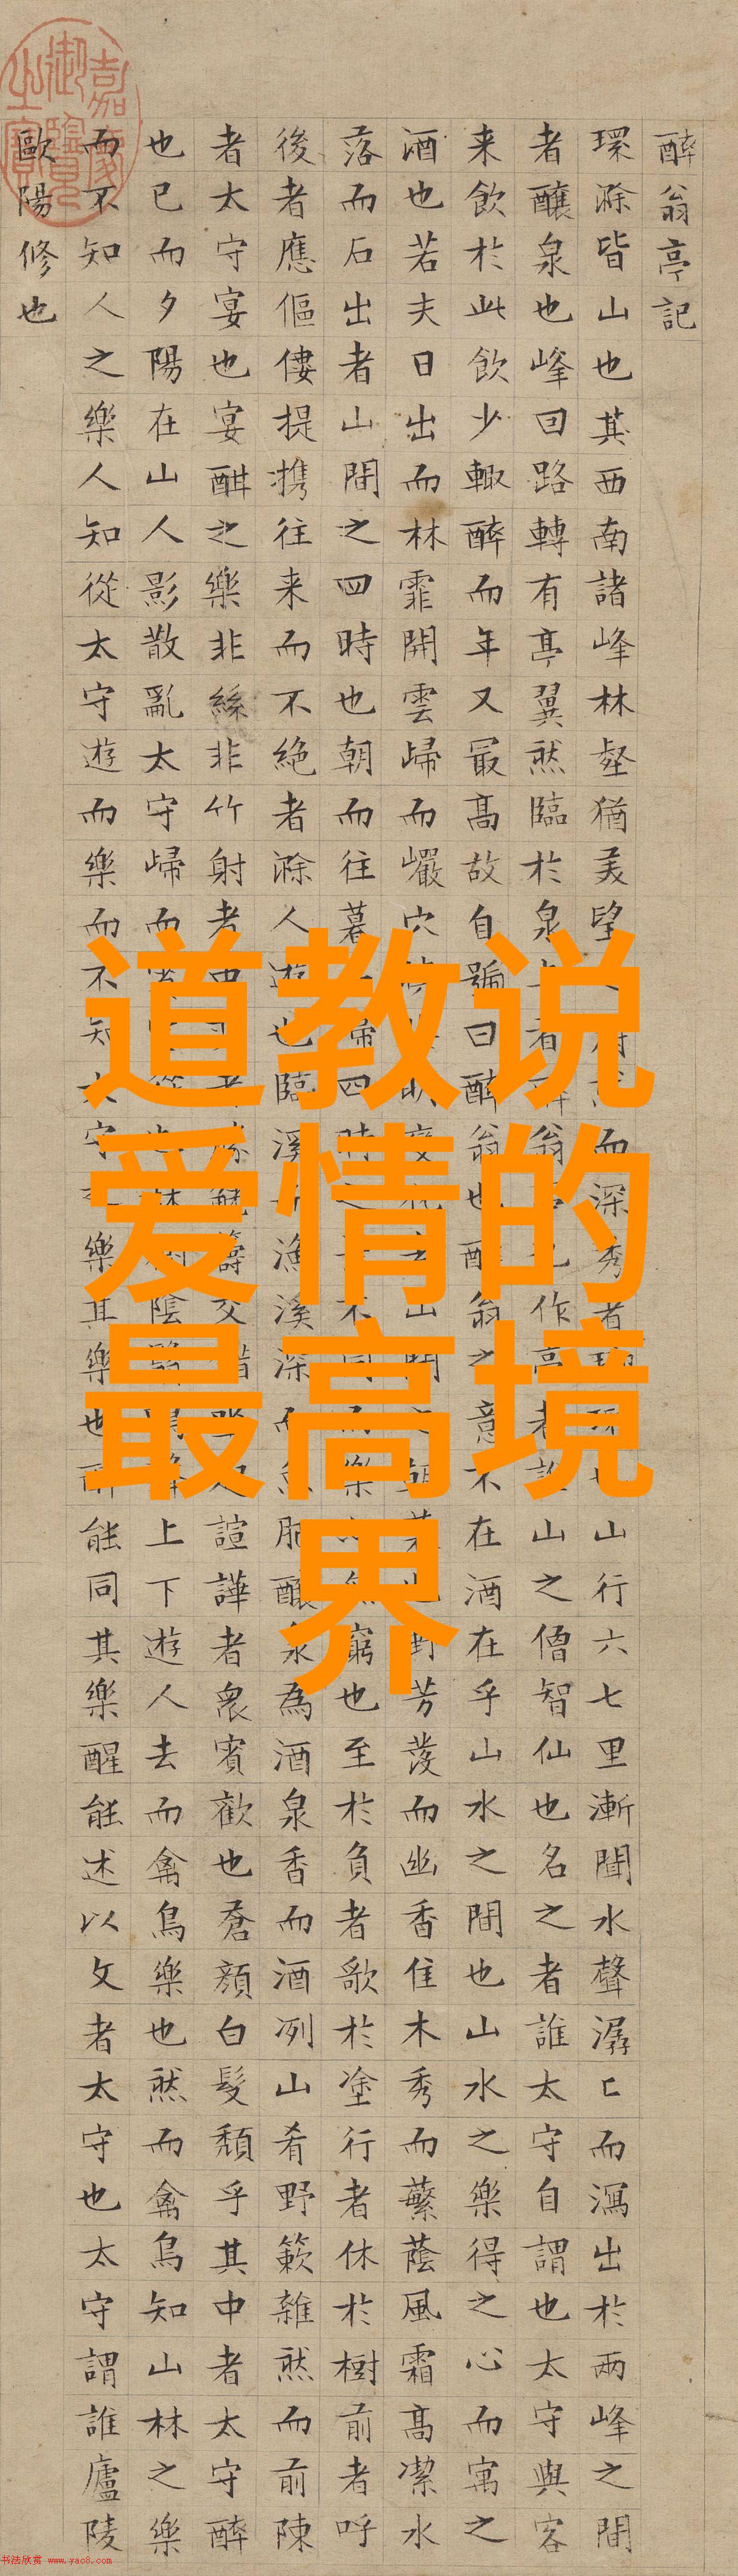 道教说
爱情的
最高境
界
醉翁亭記
環滁皆山也其西南諸峰林壑猶美望而深秀者山行六七里漸聞水聲潺匕而瀉出於兩峰之間
者釀泉也峰回路轉有亭翼然臨於泉者翁也作亭者誰山之僧智仙也名之者誰太守自謂也太守與客
来飲於此飲少輙醉而年又最高故自號曰醉翁也醉翁之意不在酒在乎山水之間也山水之樂得之心而寓之
酒也若夫日出而林霏開雲歸而巖穴變山間朝也野芳發而幽香佳木秀而蘩蔭風霜高潔水
落而石出者山間之四時也朝而往暮歸四時不同樂窮也至於負者歌於塗行者休於樹前者呼
後者應傴僂提携往来而不絶者滁人遊也臨溪漁溪深而魚肥釀泉為酒泉香而酒冽山肴野簌雜然而前陳
者太守宴也宴酣之樂非絲非竹射者中者勝觥籌交錯諠譁者衆賓歡也蒼顔白髮頹乎其中者太守醉
也已而夕陽在山人影散亂太守歸而從也林陰上下遊人去而禽鳥樂也然而禽鳥知山林之樂
而不知人之樂人知從太守遊而樂而不知太守樂其樂也醉能同其樂醒能述以文者太守也太守謂誰廬陵
歐陽修也
嘉慶御覽之寶
书法欣赏 www.yac8.com